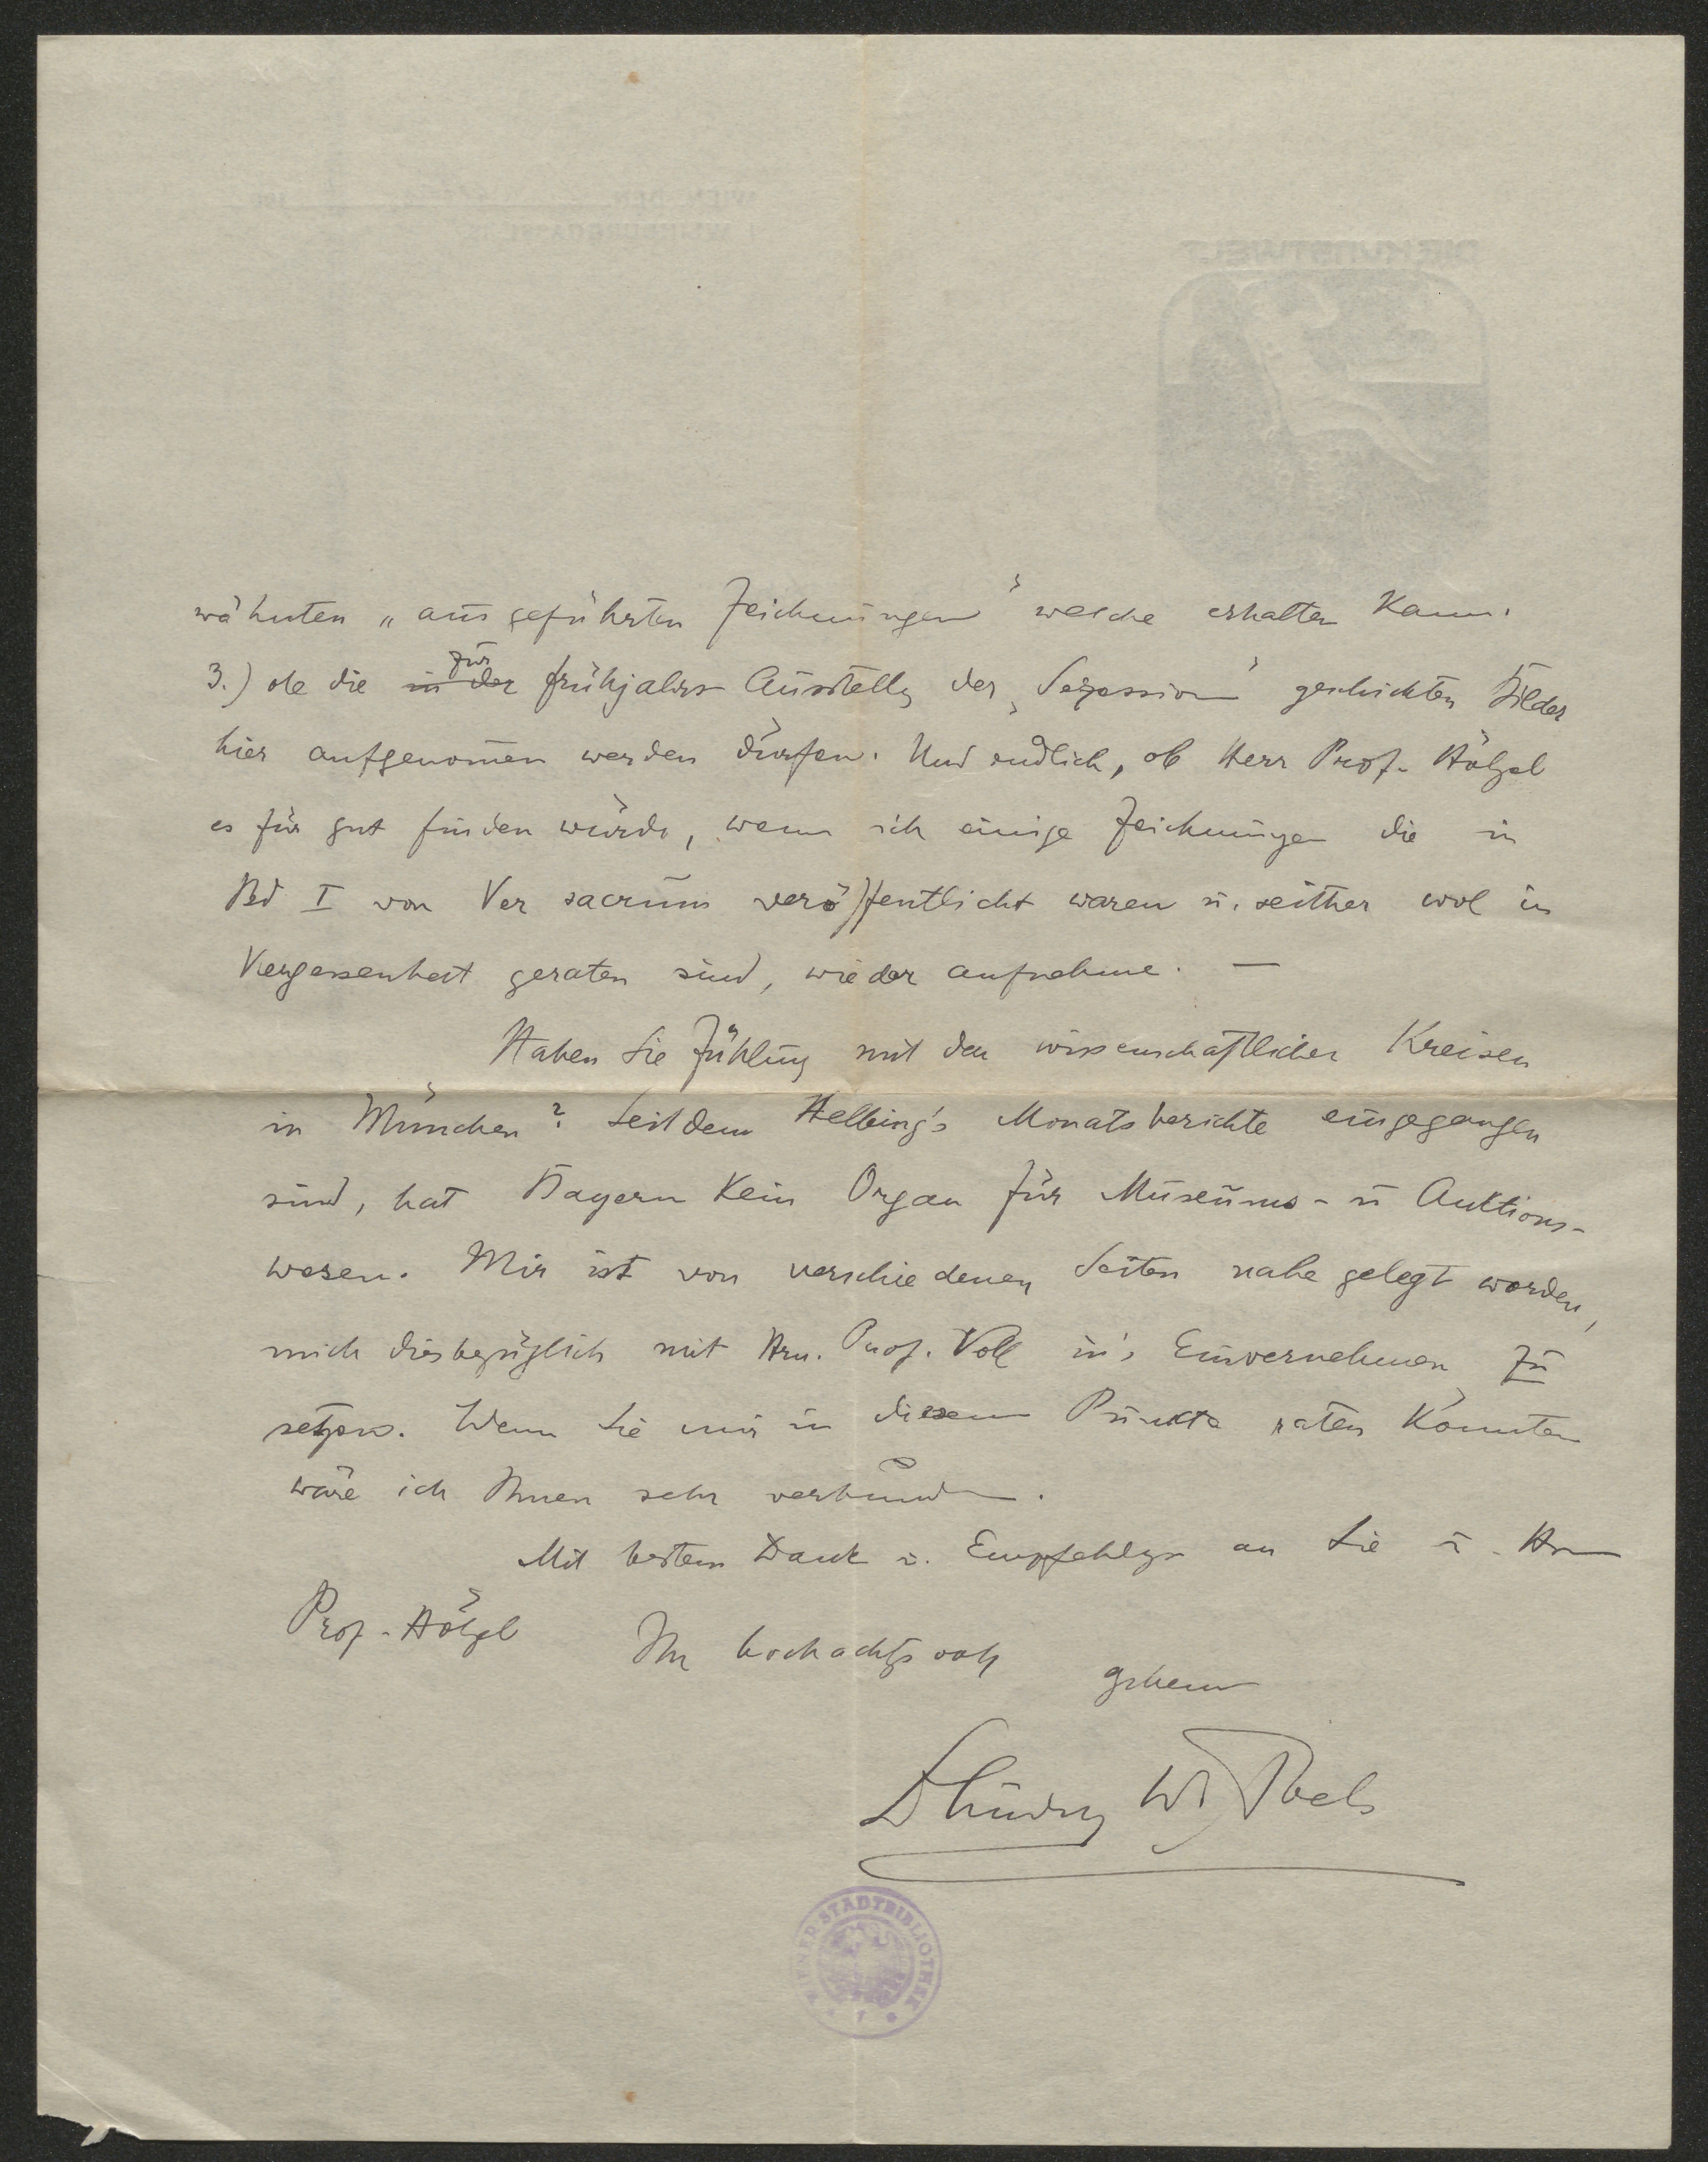 wähnten „ausgeführten Zeichnungen" welche erhalten kann.
für
3.) ob die in der frühjahrs Ausstellg der „Sezession" geschickten Bilder
hier aufgenomen werden dürfen. Und endlich, ob Herr Prof. Hölzel
es für gut finden würde, wenn ich einige Zeichnungen die in
Bd I von Ver sacrum veröffentlicht waren u. seither wol in
Vergessenheit geraten sind, wieder aufnehme. —
Haben Sie Fühlung mit den wissenschaftlichen Kreisen
in München? Seitdem Helbing's Monatsberichte eingegangen
sind, hat Bayern kein Organ für Museums- u Auktions-
wesen. Mir ist von verschiedenen Seiten nahe gelegt worden,
mich diesbezüglich mit Hrn. Prof. Voll in's Einvernehmen zu
setzen. Wenn Sie mir in diesem Punkte raten könnten
wäre ich Ihnen sehr verbunden.
Mit bestem Dank u. Empfehlgn an Sie u. Hrn
Prof. Hölzel
Ihr hochachtgsvoll
WIENER STADTBIBLIOTHEK
DIE KUNSTWELT
WIEN, DEN